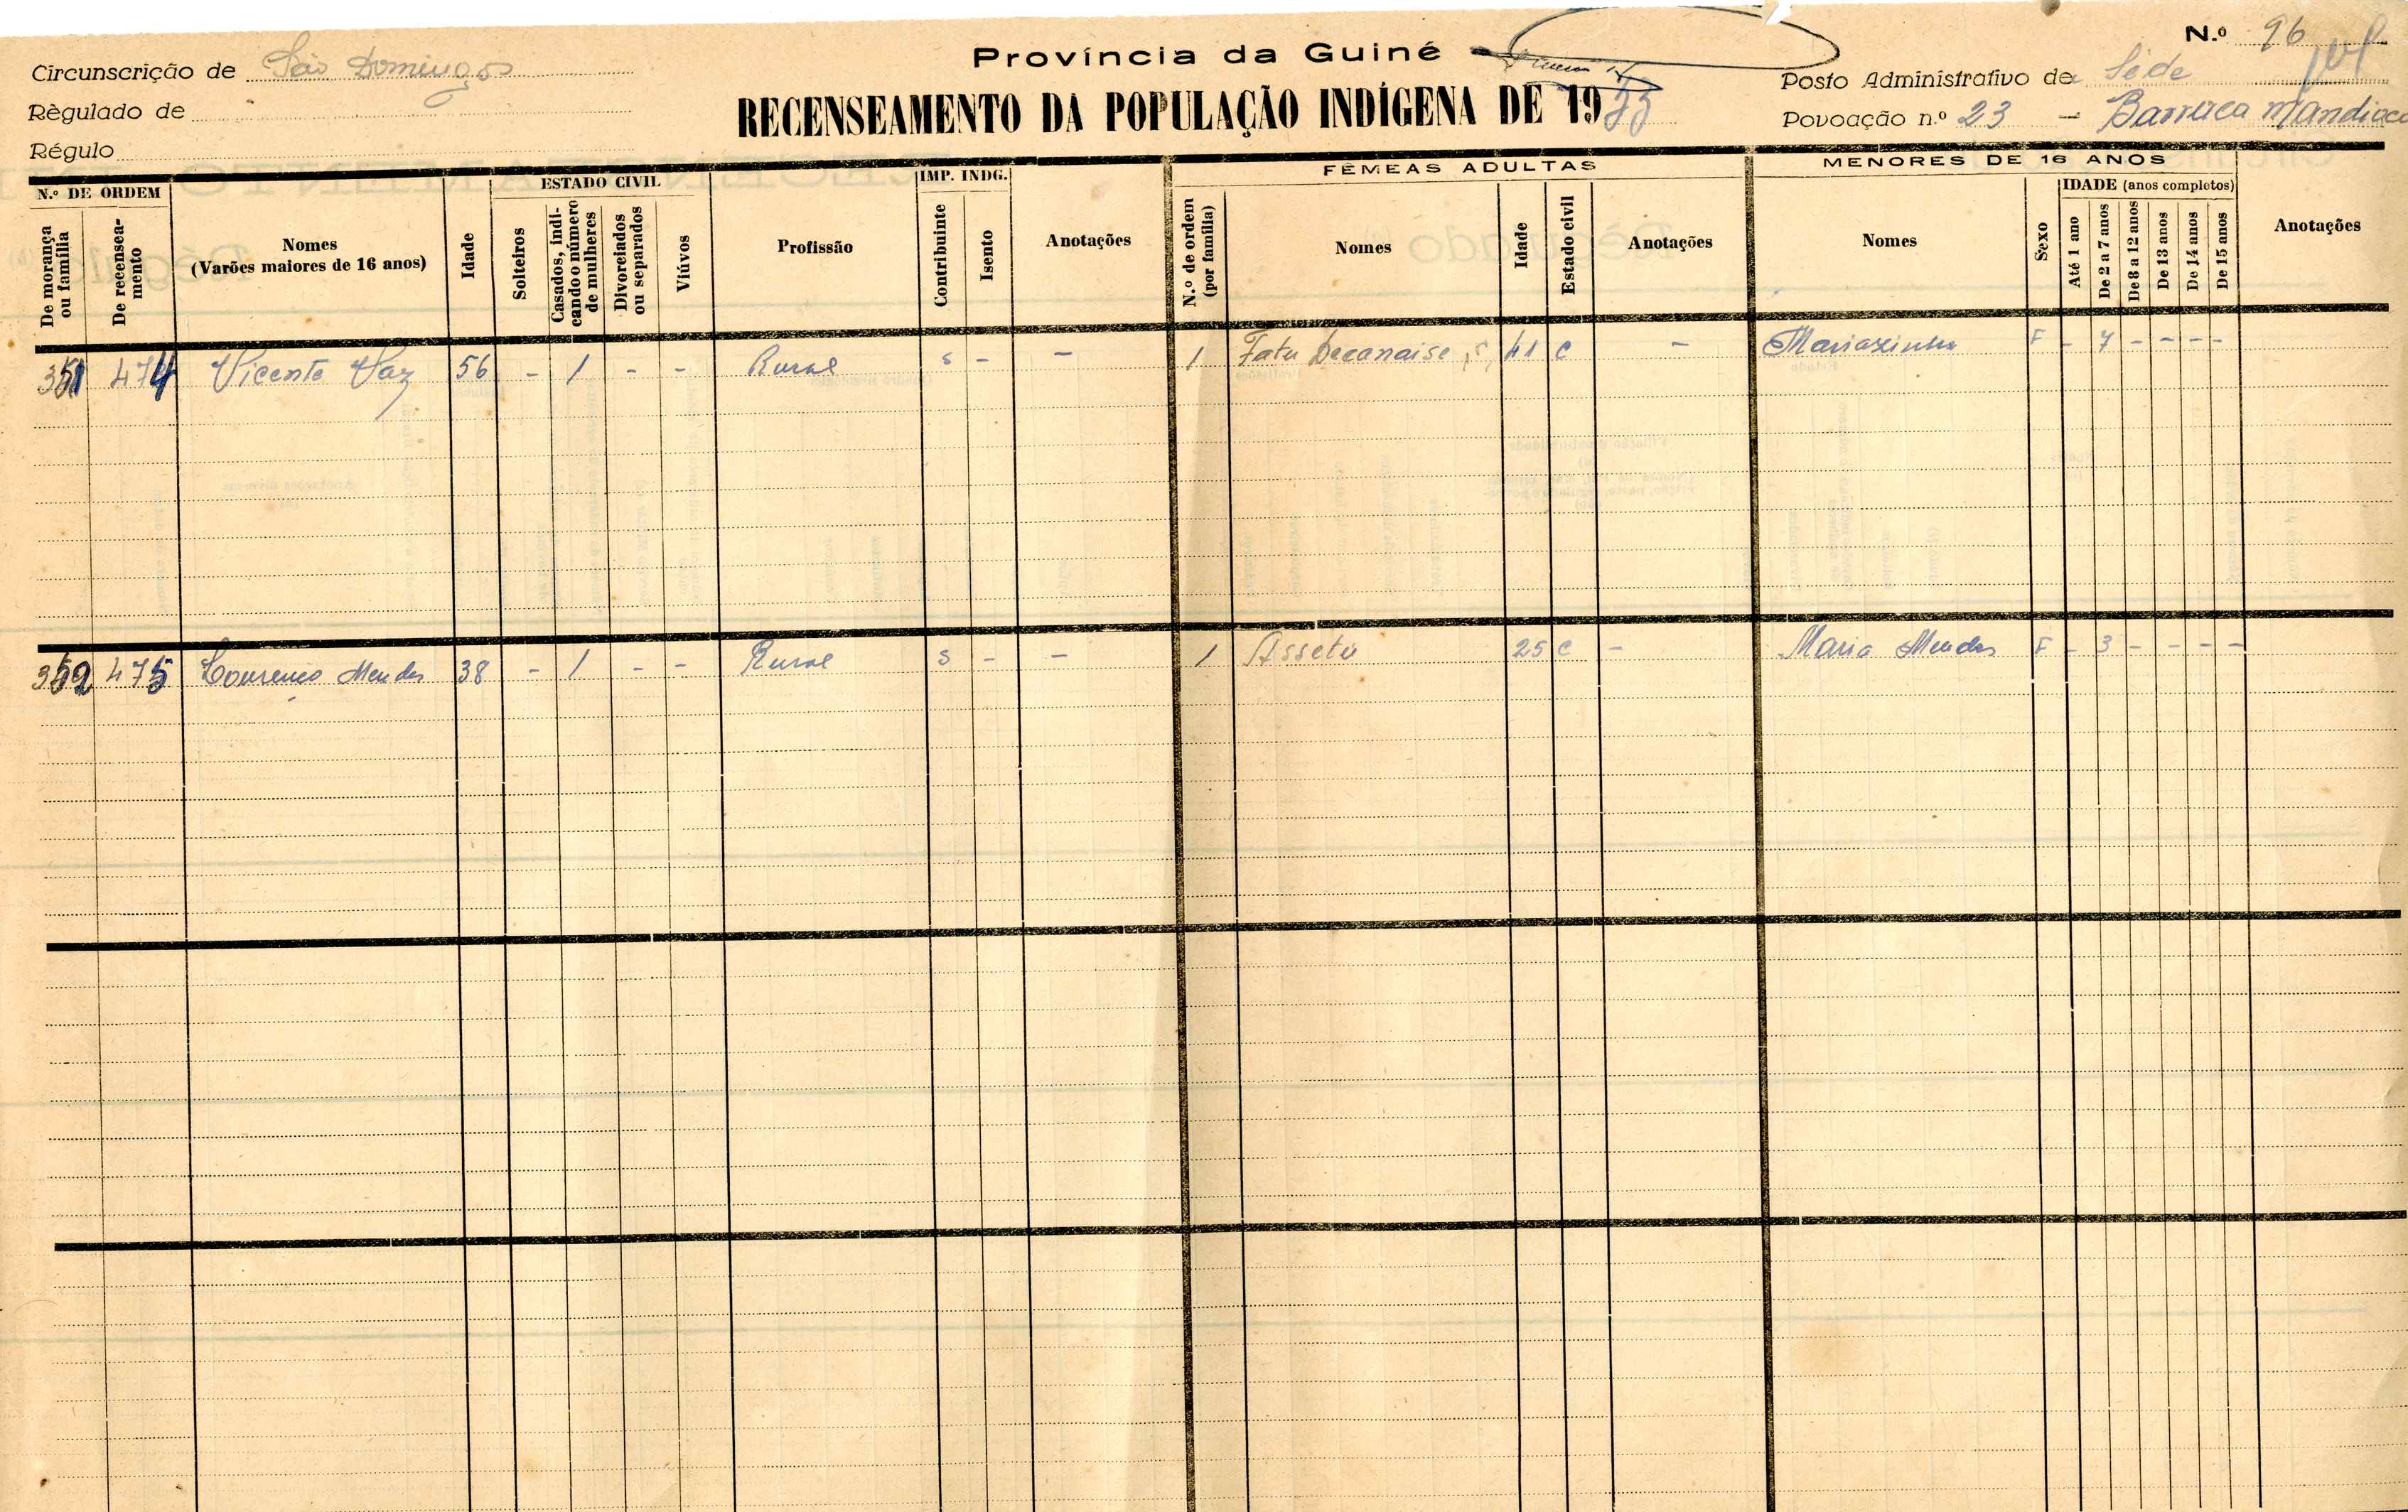 N.º 96
Província da Guiné
Circunscrição de São Domingos
Posto Administrativo de Séde
Règulado de
RECENSEAMENTO DA POPULAÇÃO INDÍGENA DE 1953
Povoação n.º 23 – Barraca Mandiaco
Régulo
N.º DE ORDEM
De morança ou família
De recenseamento
Nomes
(Varões maiores de 16 anos)
Idade
ESTADO CIVIL
Solteiros
Casados, indicando o número de mulheres
Divorciados ou separados
Viúvos
Profissão
IMP. INDG.
Contribuinte
Isento
Anotações
FÊMEAS ADULTAS
N.º de ordem (por família)
Nomes
Idade
Estado civil
Anotações
MENORES DE 16 ANOS
Nomes
Sexo
IDADE (anos completos)
Até 1 ano
De 2 a 7 anos
De 8 a 12 anos
De 13 anos
De 14 anos
De 15 anos
Anotações
351 474 Vicente Vaz 56 - 1 - - Rural s - - 1 Fatu 41 c - Mariazinha F - 7 - - - -
352 475 Lourenço Mendes 38 - 1 - - Rural s - - 1 Asseto 25 c - Maria Mendes F - 3 - - - -